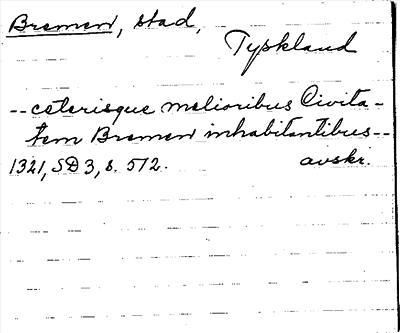 Bremen, stad,
Tyskland
-- ceterisque melioribus Civita-
tem Bremen inhabitantibus --
1321, SD 3, s. 572. avskr.